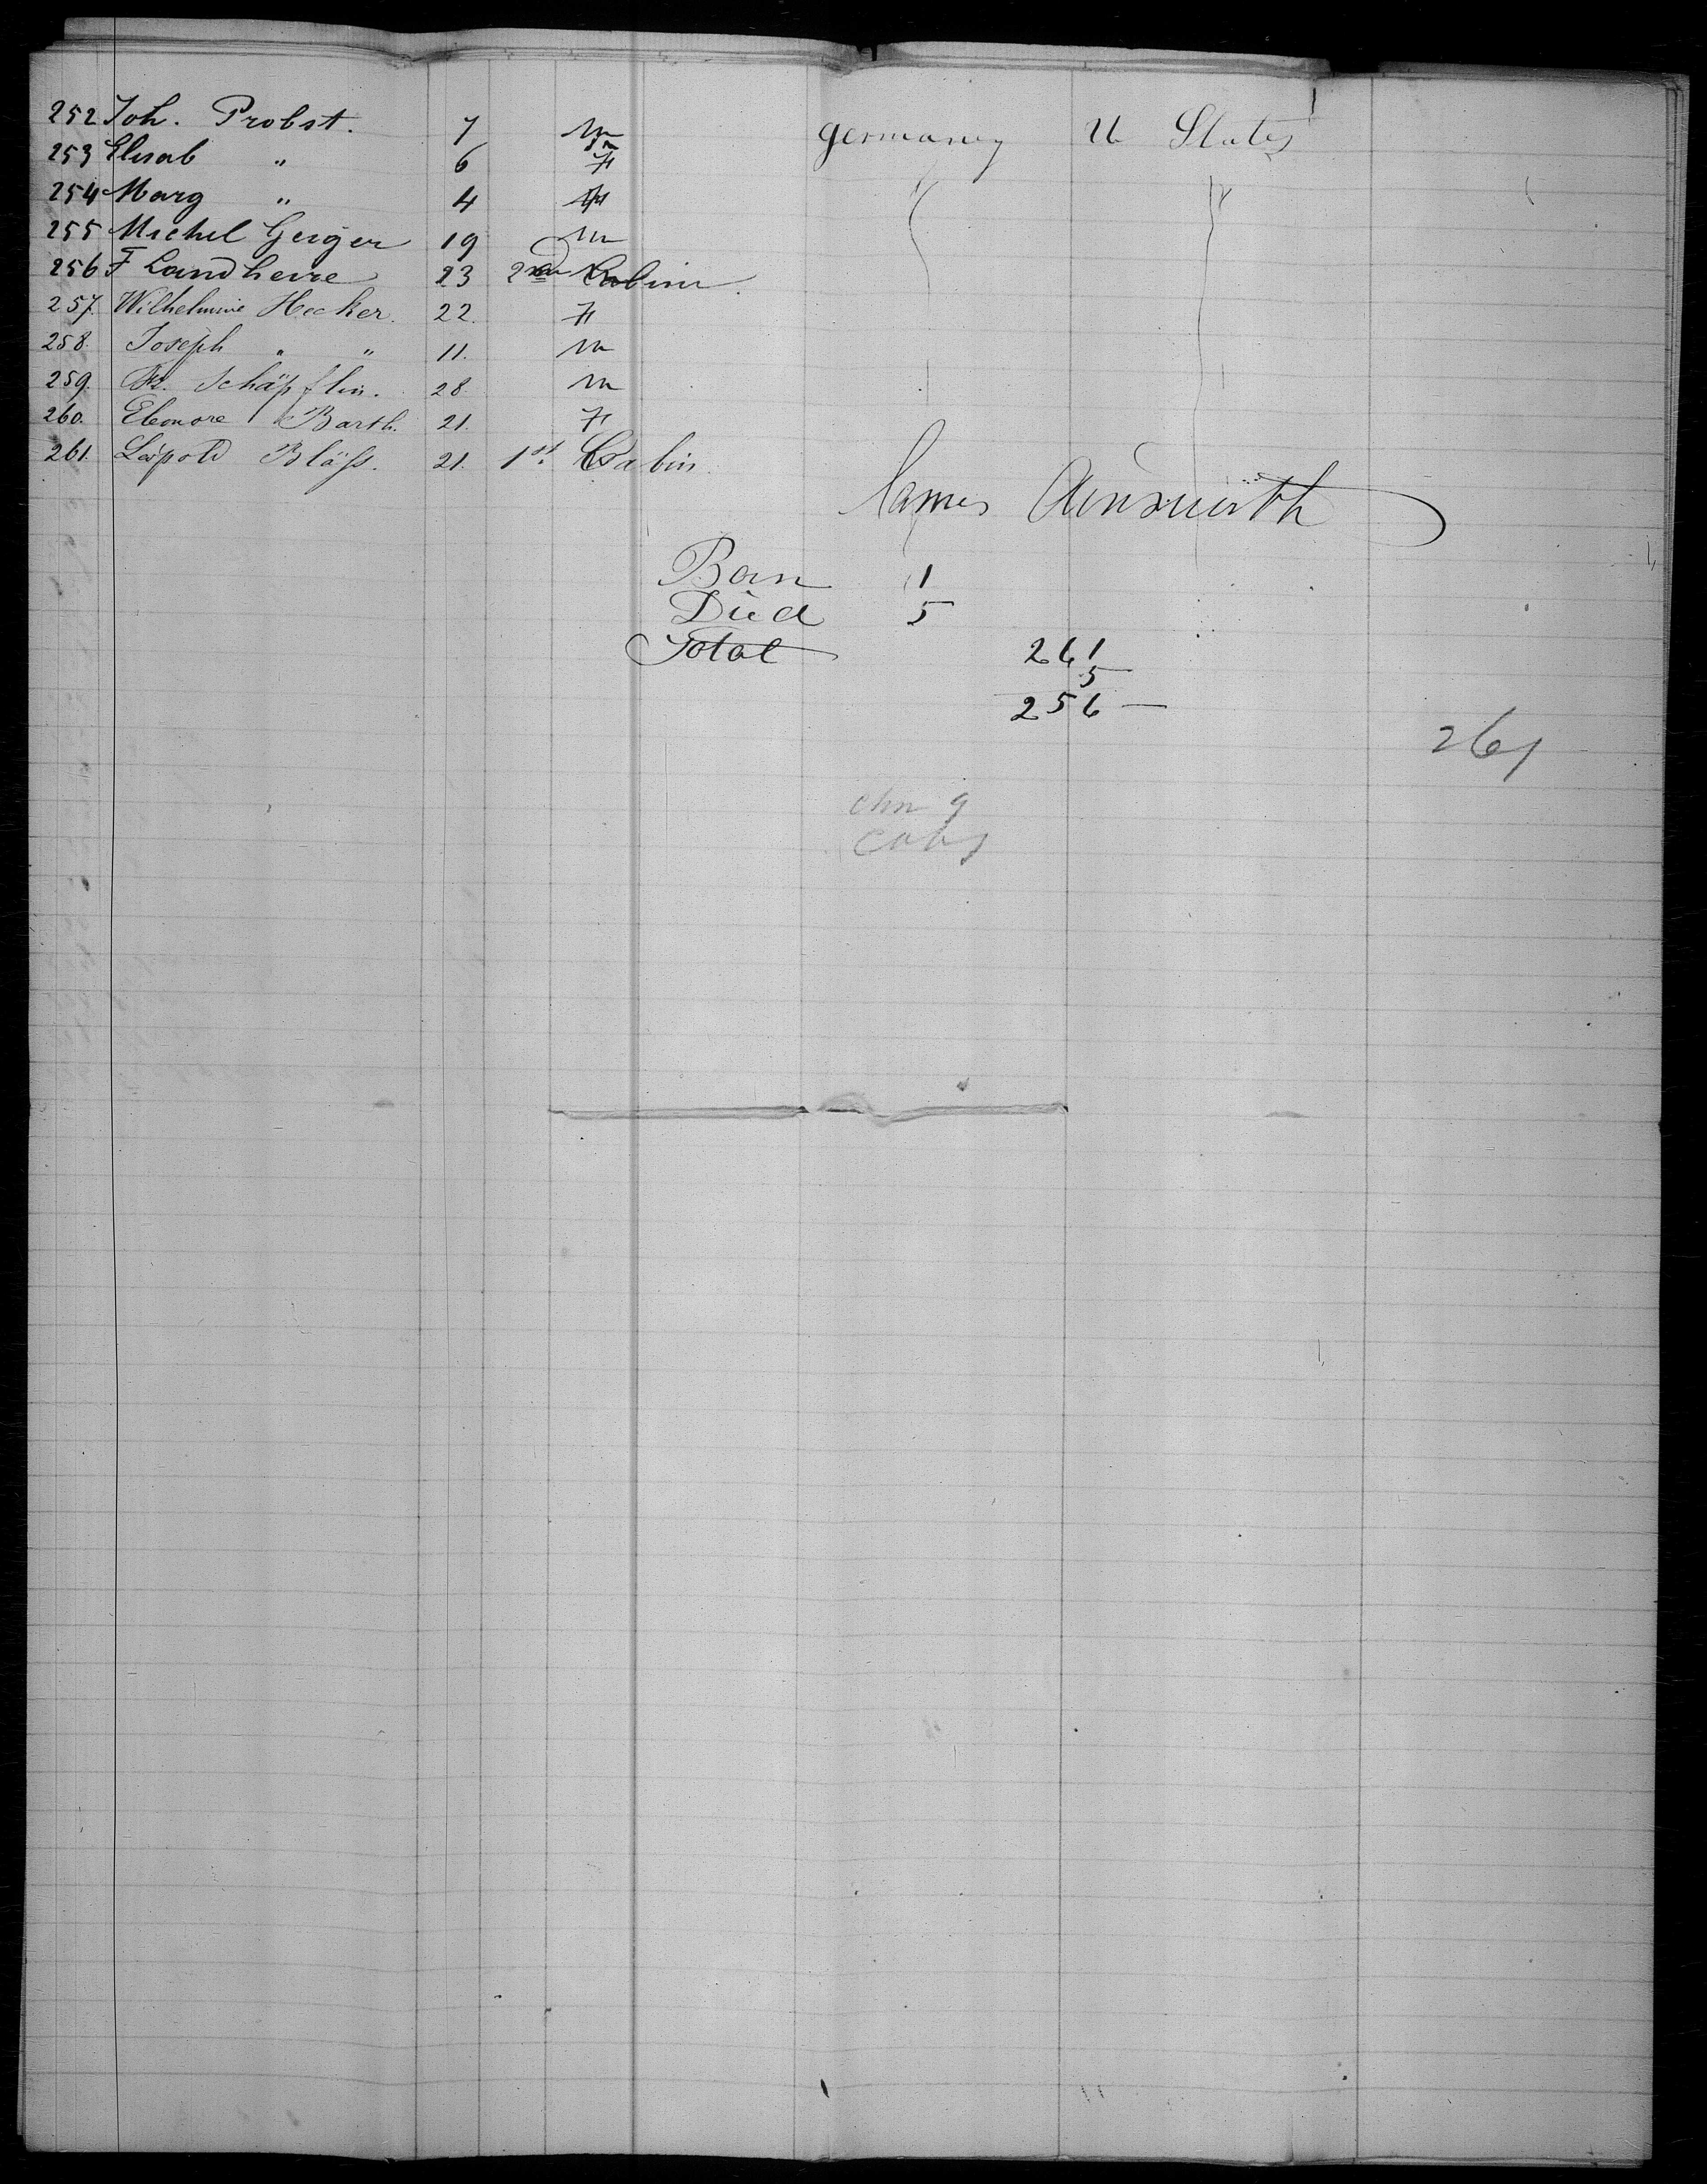 252 Joh. Probst. 7 m Germany U States
253 Elisab " 6 F
254 Marg " 4 F
255 Michel Geiger 19 m
256 F Landherre 23 2nd Cabin.
257. Wilhelmine Hecker. 22. F
258. Joseph " " 11. m
259. Fr. Schäpflin. 28. m
260. Eleonore Barth. 21. F
261. Leopold Bläss. 21. 1st. Cabin.
James Ainsworth
Born 1
Died 5
Total 261
5
256 —
261